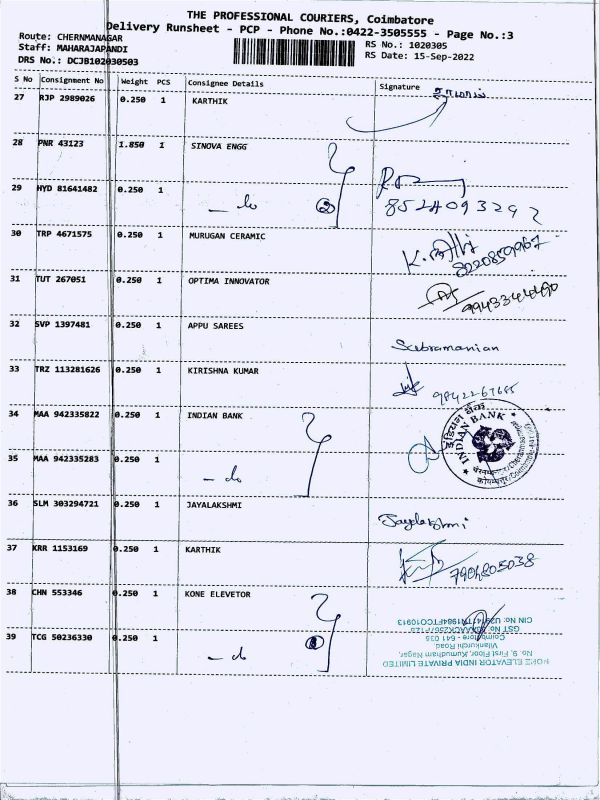 THE PROFESSIONAL COURIERS, Coimbatore
Delivery Runsheet - PCP - Phone No.:0422-3505555 - Page No.:3
Route: CHERNMANAGAR
Staff: MAHARAJAPANDI
DRS No.: DCJB102030503
RS No.: 1020305
RS Date: 15-Sep-2022
S No Consignment No Weight PCS Consignee Details Signature
27 RJP 2989026 0.250 1 KARTHIK
28 PNR 43123 1.850 1 SINOVA ENGG
29 HYD 81641482 0.250 1 - do 2 8524093292
30 TRP 4671575 0.250 1 MURUGAN CERAMIC 8220859967
31 TUT 267051 0.250 1 OPTIMA INNOVATOR 9943344490
32 SVP 1397481 0.250 1 APPU SAREES Subramanian
33 TRZ 113281626 0.250 1 KIRISHNA KUMAR 9842267685
34 MAA 942335822 0.250 1 INDIAN BANK
इंडियन बैंक
INDIAN BANK
35 MAA 942335283 0.250 1 - do
36 SLM 303294721 0.250 1 JAYALAKSHMI Jayalakshmi
37 KRR 1153169 0.250 1 KARTHIK 7904805038
38 CHN 553346 0.250 1 KONE ELEVETOR
39 TCG 50236330 0.250 1 - do
KONE ELEVATOR INDIA PRIVATE LIMITED
No. 9, First Floor, Kumudham Nagar,
Vilankurchi Road,
Coimbatore - 641 035